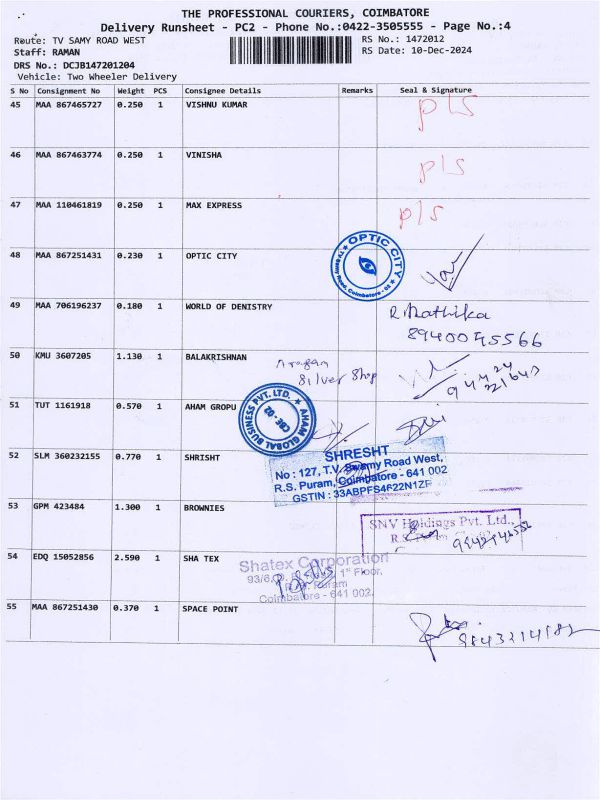 THE PROFESSIONAL COURIERS, COIMBATORE
Delivery Runsheet - PC2 - Phone No.:0422-3505555 - Page No.:4
Route: TV SAMY ROAD WEST RS No.: 1472012
Staff: RAMAN RS Date: 10-Dec-2024
DRS No.: DCJB147201204
Vehicle: Two Wheeler Delivery
S No Consignment No Weight PCS Consignee Details Remarks Seal & Signature
45 MAA 867465727 0.250 1 VISHNU KUMAR pls
46 MAA 867463774 0.250 1 VINISHA pls
47 MAA 110461819 0.250 1 MAX EXPRESS pls
48 MAA 867251431 0.230 1 OPTIC CITY
★ OPTIC CITY ★
Road, Coimbatore
49 MAA 706196237 0.180 1 WORLD OF DENISTRY
8940095566
50 KMU 3607205 1.130 1 BALAKRISHNAN
Silver Shop
51 TUT 1161918 0.570 1 AHAM GROPU
AHAM GLOBAL BUSINESS PVT. LTD. ★
CBE - 02
52 SLM 360232155 0.770 1 SHRISHT
SHRESHT
No : 127, T.V. Swamy Road West,
R.S. Puram, Coimbatore - 641 002
GSTIN : 33ABPFS4622N1ZF
53 GPM 423484 1.300 1 BROWNIES
SNV Holdings Pvt. Ltd.,
54 EDQ 15052856 2.590 1 SHA TEX
Shatex Corporation
1st Floor,
Puram
Coimbatore - 641 002.
55 MAA 867251430 0.370 1 SPACE POINT